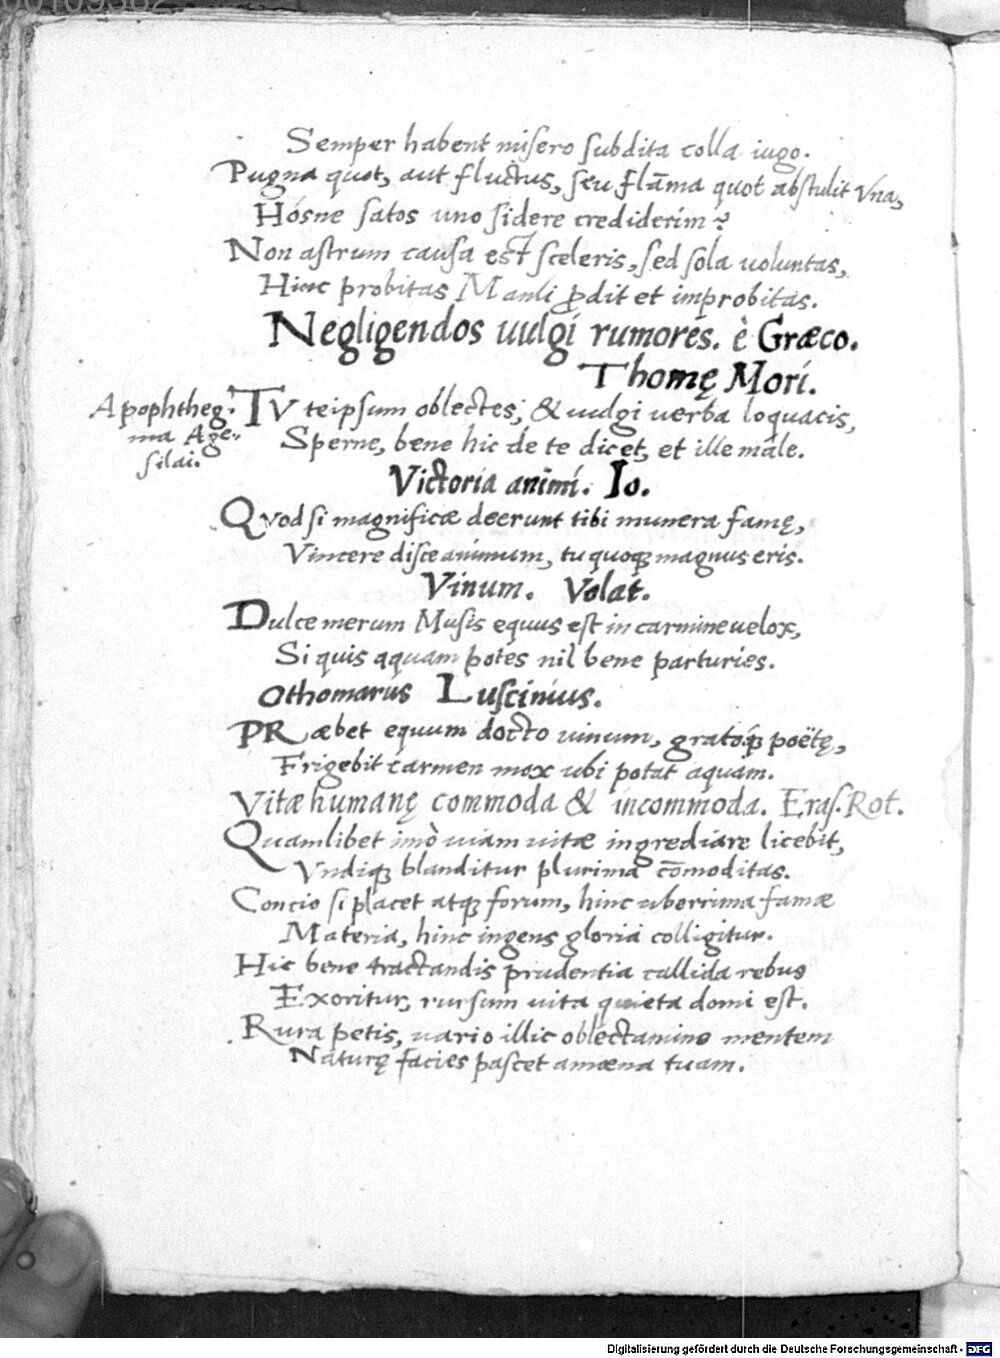 Semper habent misero subdita colla iugo.
Pugna quot, aut fluctus, seu flāma quot abstulit Vna,
Hosne satos uno sidere crediderim?
Non astrum causa est sceleris, sed sola uoluntas,
Hinc probitas Manli ꝓdit et improbitas.
Negligendos uulgi rumores. è Græco.
Thomę Mori.
Apophtheg-
ma Age-
silai.
TV teipsum oblectes, & uulgi uerba loquacis,
Sperne, bene hic de te dicet, et ille male.
Victoria animi. Io.
Quod si magnificæ deerunt tibi munera famę,
Vincere disce animum, tu quoqꝫ magnus eris.
Vinum. Volat.
Dulce merum Musis equus est in carmine uelox,
Si quis aquam potes nil bene parturies.
Othomarus Luscinius.
PRæbet equum docto uinum, gratoqꝫ poëtę,
Frigebit carmen mox ubi potat aquam.
Vitæ humanę commoda & incommoda. Eras. Rot.
Quamlibet imò uiam uitæ ingrediare licebit,
Vndiqꝫ blanditur plurima cōmoditas.
Concio si placet atqꝫ forum, hinc uberrima famæ
Materia, hinc ingens gloria colligitur.
Hic bene tractandis prudentia callida rebus
Exoritur, rursum uita quieta domi est.
Rura petis, uario illic oblectamine mentem
Naturę facies pascet amœna tuam.
Digitalisierung gefördert durch die Deutsche Forschungsgemeinschaft - DFG